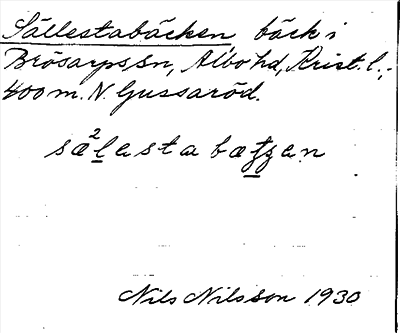 Sällestabäcken bäck i
Brösarps sn, Albo hd, Krist. l.,
400 m. N. Gussaröd.
sæ²lestabætʃen
Nils Nilsson 1930